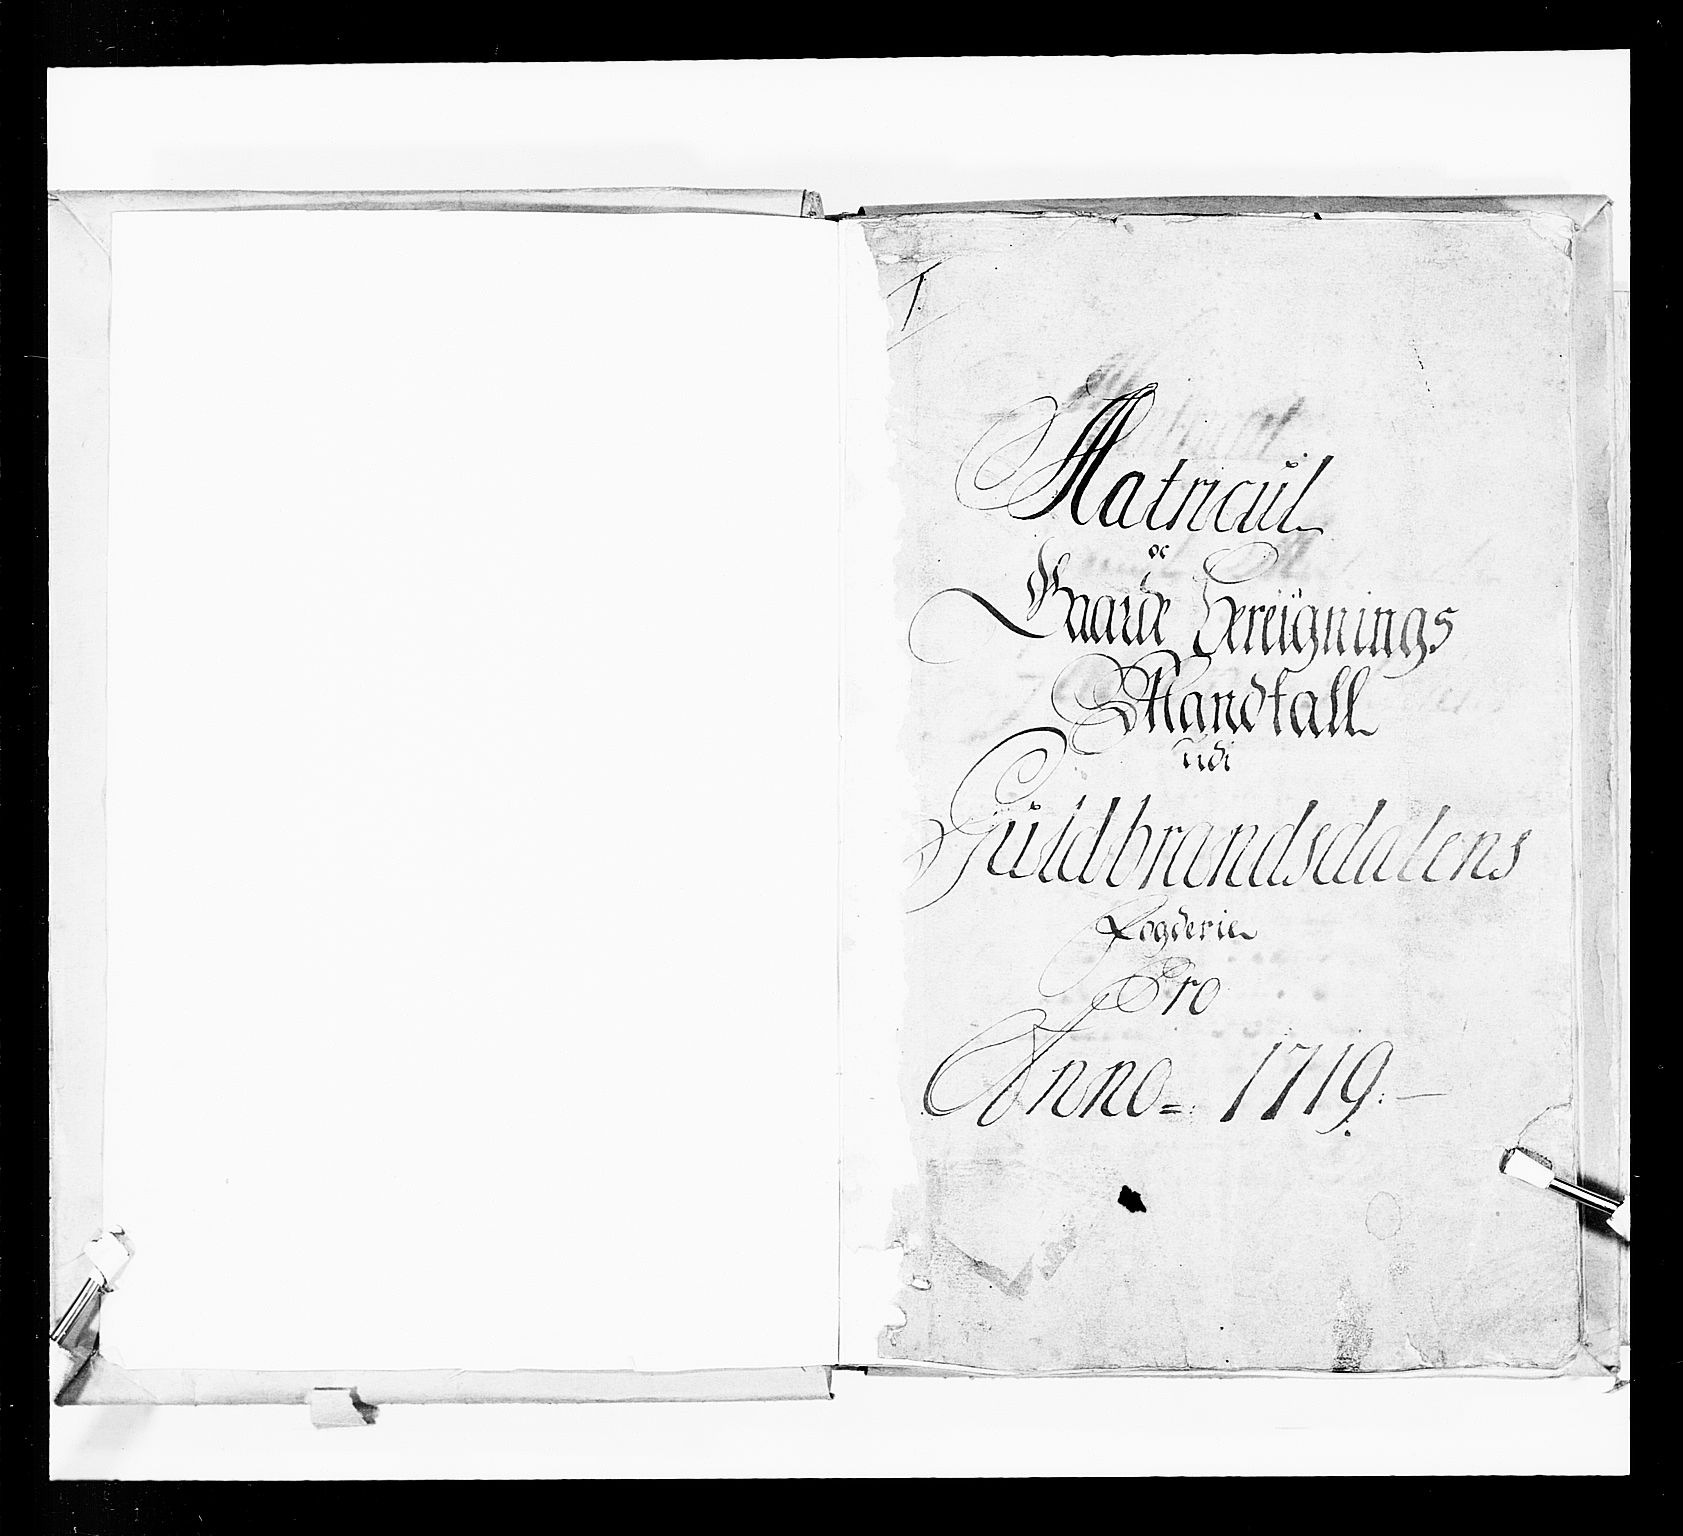 1.
Matricul
og
Gaarde Bereignings
Mandtall
udi
Guldbrandsdalens
Fogderie
Pro
Anno= 1719.